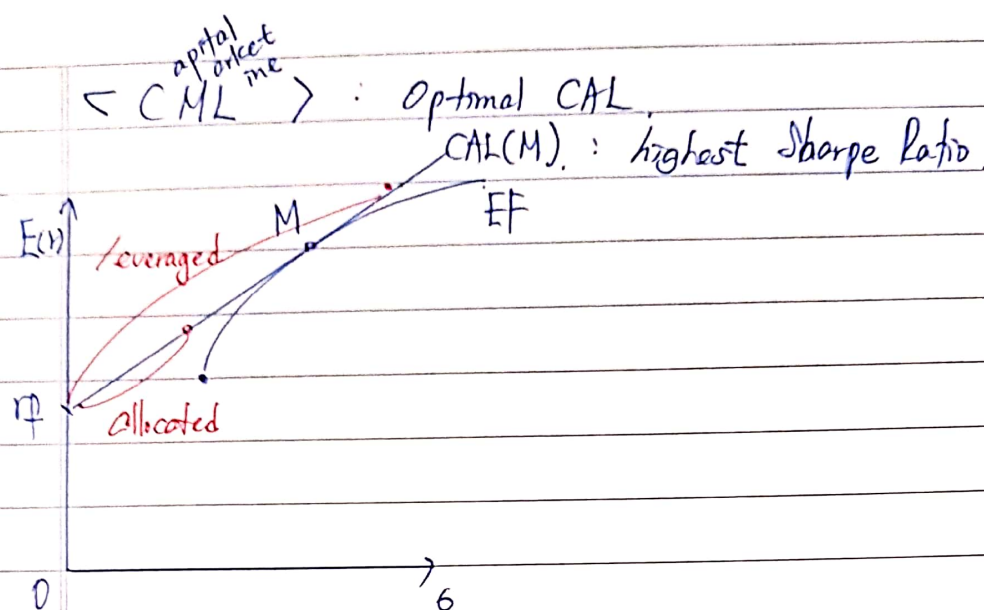 apital
arket
ine
< CML > : Optimal CAL.
CAL(M). : highest Sharpe Ratio
EF
M
E(r)
leveraged
rf
allocated
0
σ